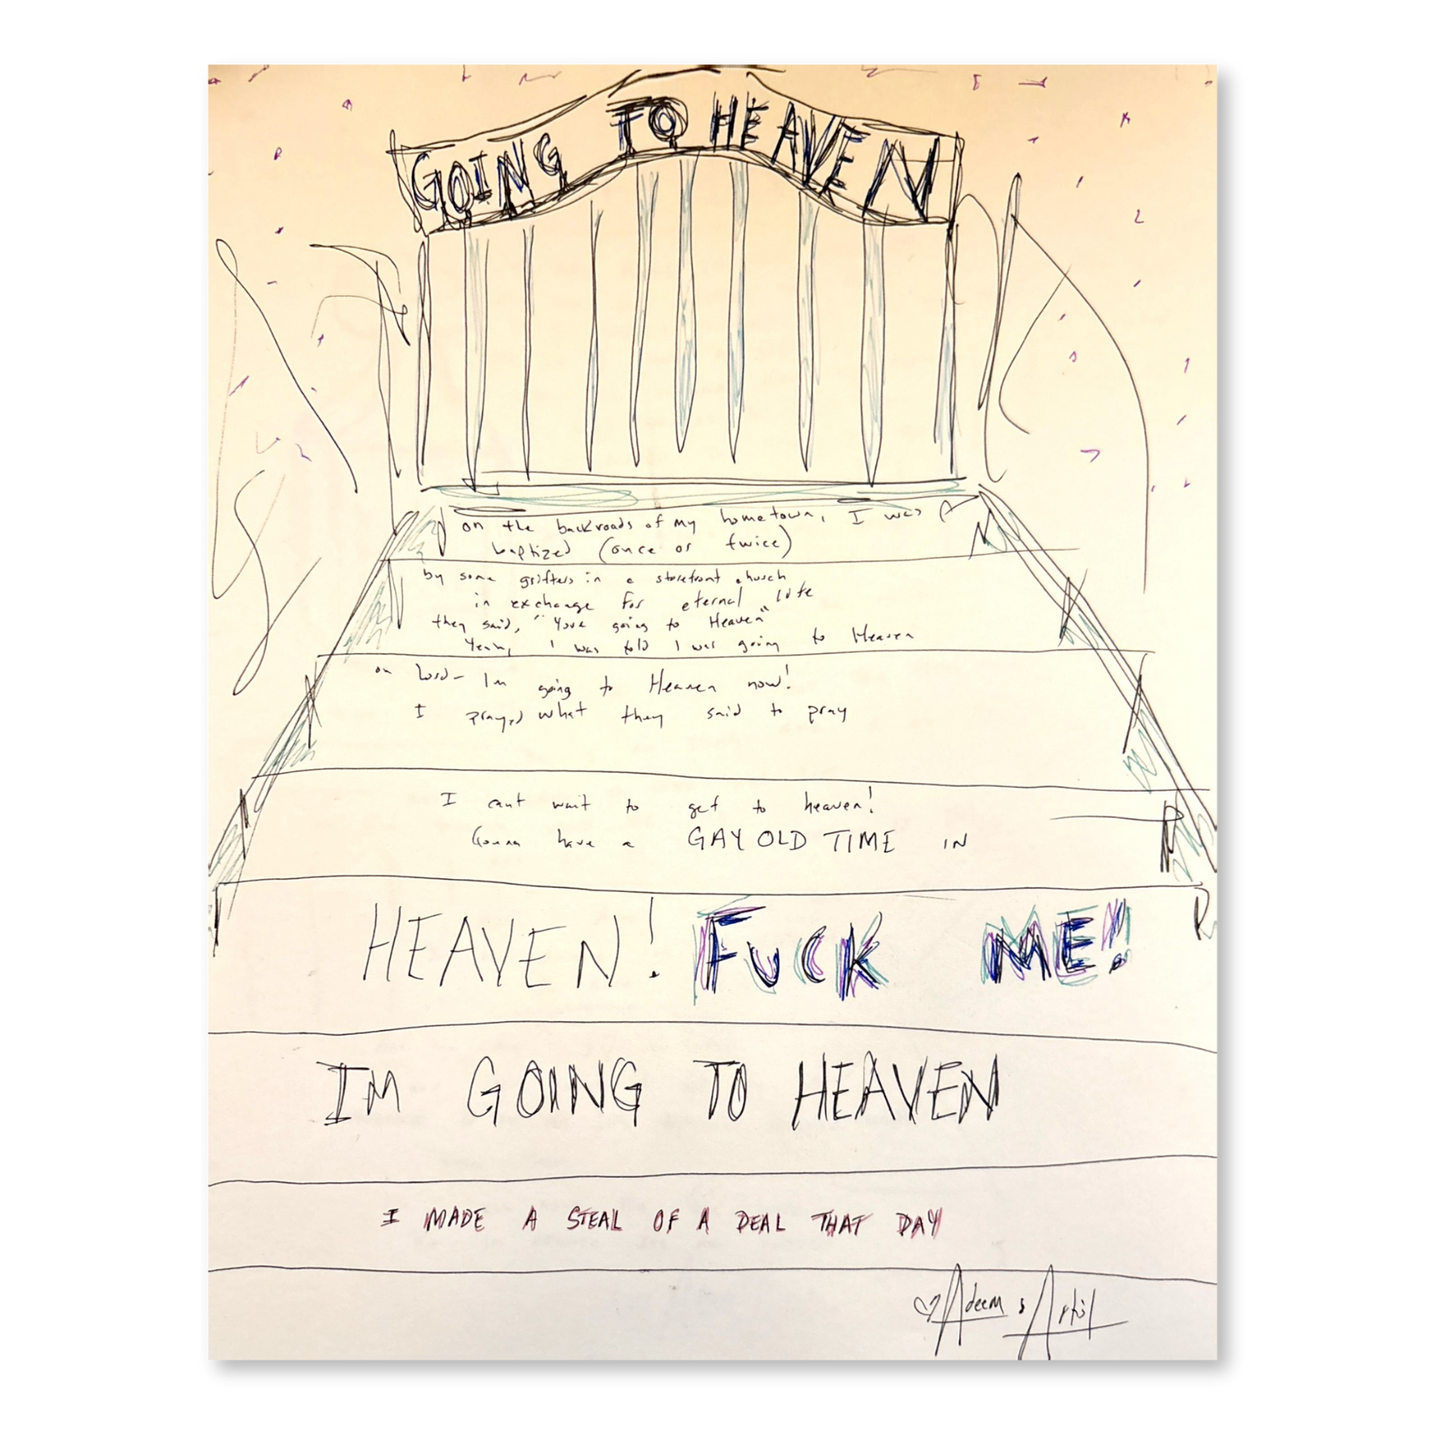 GOING TO HEAVEN
on the backroads of my hometown, I was
baptized (once or twice)
by some grifters in a storefront church
in exchange for eternal life
they said, "Youre going to Heaven"
Yeah, I was told I was going to Heaven
oh Lord- Im going to Heaven now!
I prayed what they said to pray
I cant wait to get to heaven!
Gonna have a GAY OLD TIME IN
HEAVEN! FUCK ME!!
IM GOING TO HEAVEN
I MADE A STEAL OF A DEAL THAT DAY
Adeem